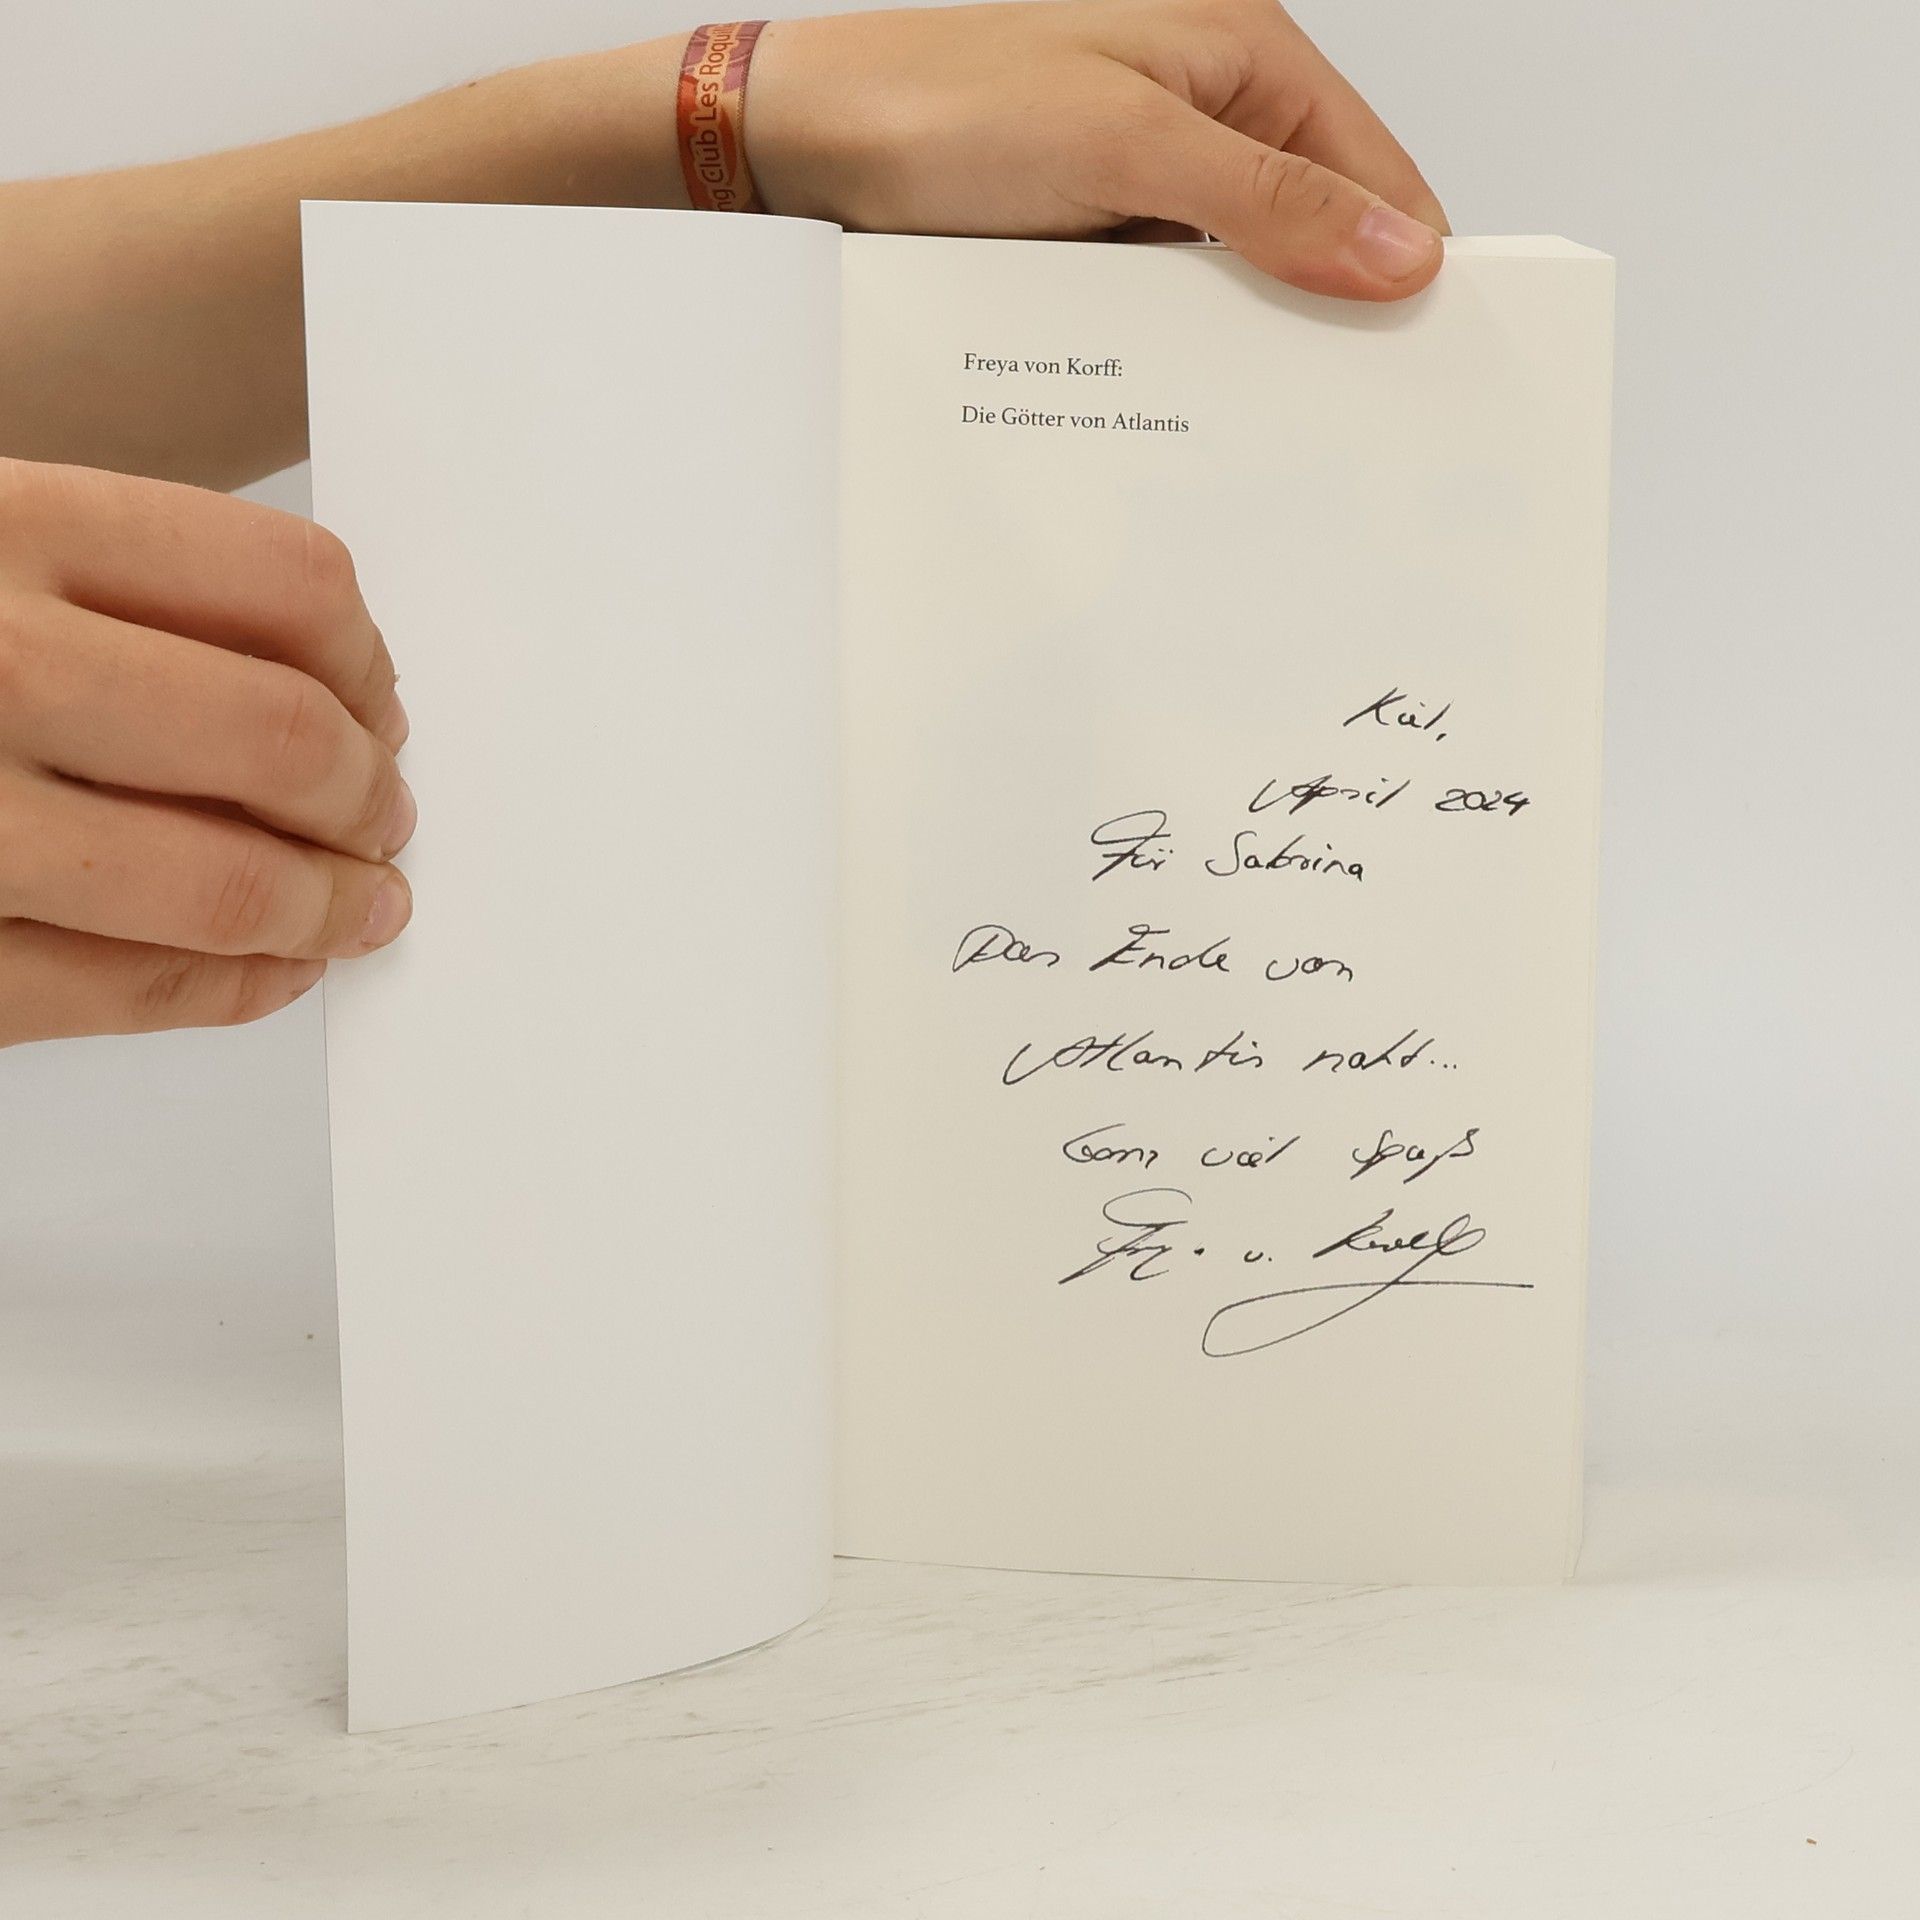 ng Club Les Roquil
Freya von Korff:
Die Götter von Atlantis
Kiel,
April 2024
Für Sabrina
Das Ende von
Atlantis naht...
Ganz viel Spaß
Freya v. Korff